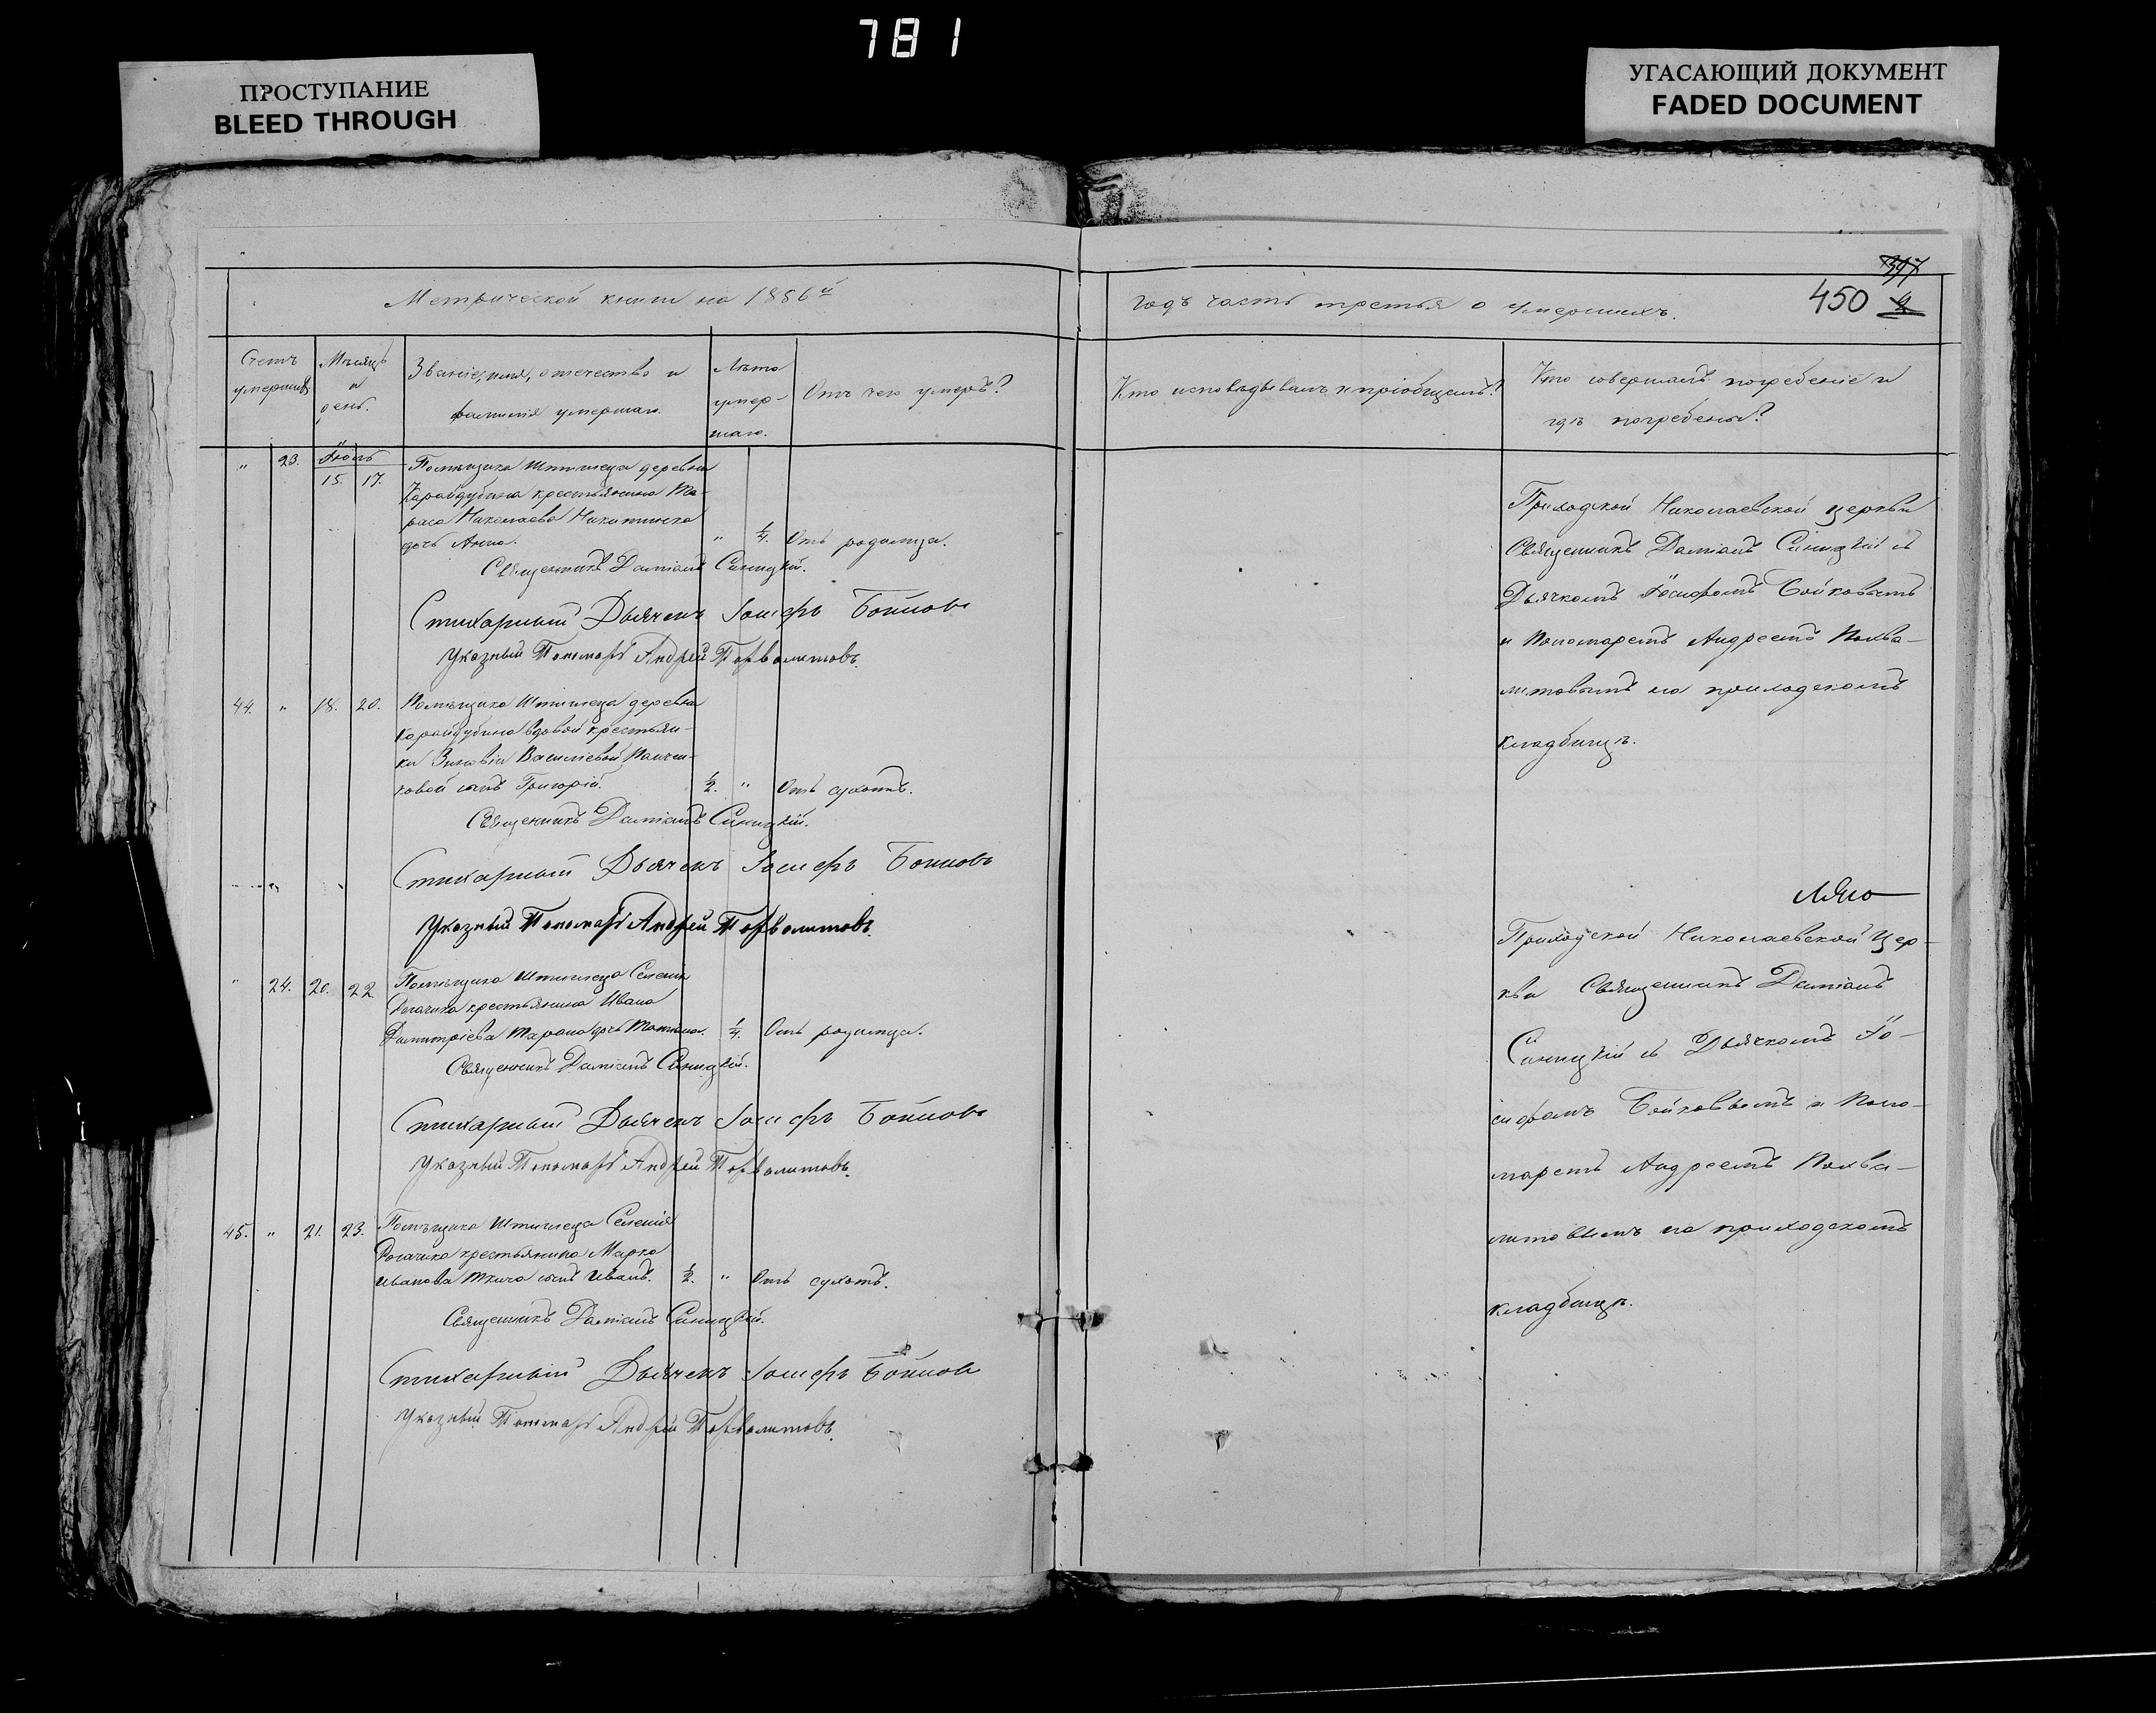 781
ПРОСТУПАНИЕ
BLEED THROUGH
УГАСАЮЩИЙ ДОКУМЕНТ
FADED DOCUMENT
Метрической книги на 1856й
Счетъ умершихъ.
Мѣсяцъ и день.
Званіе, имя, отечество и фамилія умершаго.
Лѣта умершаго.
Отъ чего умеръ?
Іюль
" 23. 15. 17. Помѣщика Штиглеца деревни
Карайдубина крестьянина Та-
раса Николаева Никитинка
дочь Анна. " 1/4. Отъ родимца.
Священникъ Даміанъ Синицкій.
Стихарный Дьячекъ Іосифъ Бойковъ
Указный Пономарь Андрей Похвалитовъ.
44. " 18. 20. Помѣщика Штиглеца деревни
Карайдубина вдовой крестьян-
ки Зиновіи Василіевой
сынъ Григорій. 1/2. " Отъ сухотъ.
Священникъ Даміанъ Синицкій.
Стихарный Дьячекъ Іосифъ Бойковъ
Указный Пономарь Андрей Похвалитовъ.
" 24. 20. 22 Помѣщика Штиглеца Селенія
Рогачика крестьянина Ивана
Димитріева Тарана дочь Татіана. 1/4. Отъ родимца.
Священникъ Даміанъ Синицкій.
Стихарный Дьячекъ Іосифъ Бойковъ
Указный Пономарь Андрей Похвалитовъ.
45. " 21. 23. Помѣщика Штиглеца Селенія
Рогачика крестьянина Марка
Иванова Ткача сынъ Иванъ. 1/2. " Отъ сухотъ.
Священникъ Даміанъ Синицкій.
Стихарный Дьячекъ Іосифъ Бойковъ
Указный Пономарь Андрей Похвалитовъ.
годъ часть третья о умершихъ.
450
Кто исповѣдывалъ и пріобщалъ?
Кто совершалъ погребеніе и
гдѣ погребены?
Приходской Николаевской церкви
Священникъ Даміанъ Синицкій съ
Дьячкомъ Іосифомъ Бойковымъ
и Пономаремъ Андреемъ Похва-
литовымъ на приходскомъ
кладбищѣ.
Приходской Николаевской цер-
кви Священникъ Даміанъ
Синицкій съ Дьячкомъ Іо-
сифомъ Бойковымъ и Поно-
маремъ Андреемъ Похва-
литовымъ на приходскомъ
кладбищѣ.